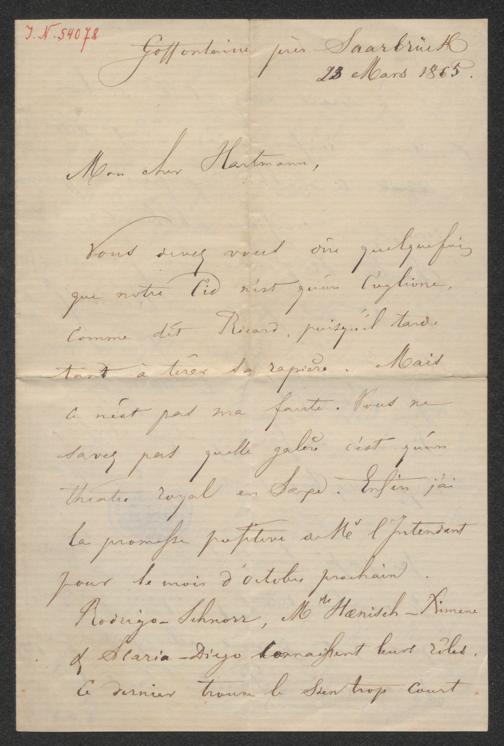 J.N. 54078
Goffontaine près Saarbrück
23 Mars 1865.
Mon cher Hartmann,
Vous devez vous dire quelquefois
que notre Cid n'est qu'un
comme dit Ricard, puisqu'il tarde
tant à tirer sa rapière. Mais
ce n'est pas ma faute. Vous ne
savez pas quelle galère c'est qu'un
théatre royal en Saxe. Enfin j'ai
la promesse positive de Mr l'Intendant
pour le mois d'Octobre prochain.
Rodrigo-Schnorr, Mlle Hænisch-Ximene
& Scaria-Diego connaissent leurs rôles.
Ce dernier trouve le sien trop court